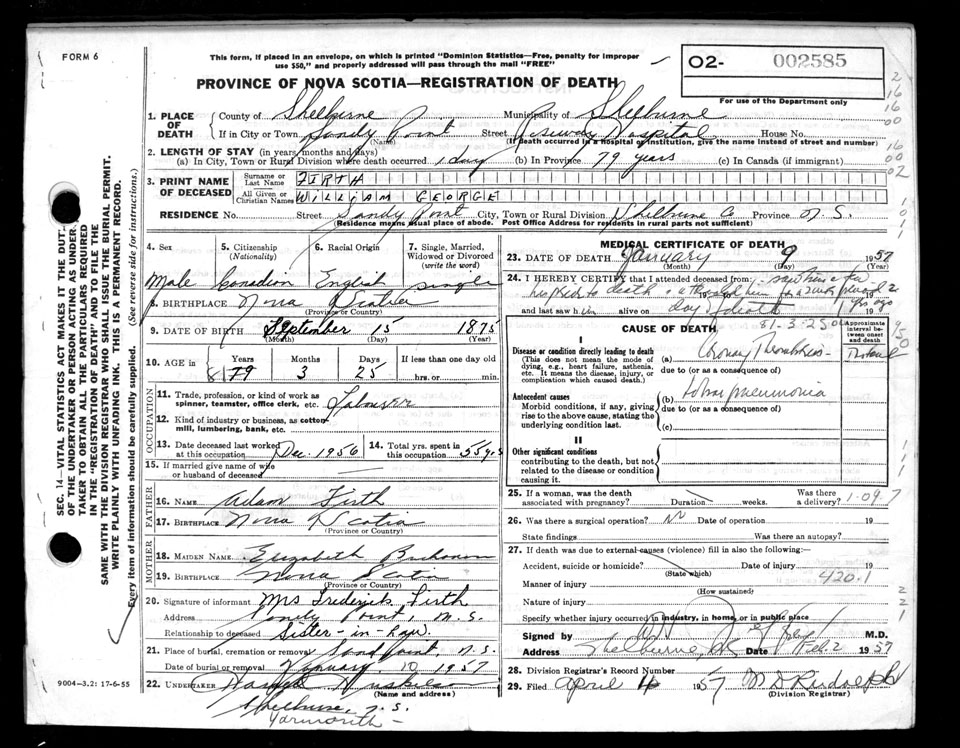 FORM 6
This form, if placed in an envelope, on which is printed "Dominion Statistics—Free, penalty for improper
use $50," and properly addressed will pass through the mail "FREE"
O2- 002585
For use of the Department only
PROVINCE OF NOVA SCOTIA—REGISTRATION OF DEATH
1. PLACE OF DEATH
County of Shelburne Municipality of Shelburne
If in City or Town Sandy Point Street Roseway Hospital House No.
(Name) (If death occurred in a hospital or institution, give the name instead of street and number)
2. LENGTH OF STAY (in years, months and days)
(a) In City, Town or Rural Division where death occurred 1 day (b) In Province 79 years (c) In Canada (if immigrant)
3. PRINT NAME OF DECEASED
Surname or Last Name FIRTH
All Given or Christian Names WILLIAM GEORGE
RESIDENCE No. Street Sandy Point City, Town or Rural Division Shelburne Co Province N.S.
(Residence means usual place of abode. Post Office Address for residents in rural parts not sufficient)
4. Sex 5. Citizenship (Nationality) 6. Racial Origin 7. Single, Married, Widowed or Divorced (write the word)
Male Canadian English single
8. BIRTHPLACE Nova Scotia
(Province or Country)
9. DATE OF BIRTH September 15 1875
(Month) (Day) (Year)
10. AGE in Years Months Days If less than one day
79 3 25 hrs. or min.
OCCUPATION
11. Trade, profession, or kind of work as spinner, teamster, office clerk, etc. Labourer
12. Kind of industry or business, as cotton mill, lumbering, bank, etc.
13. Date deceased last worked at this occupation Dec. 1956 14. Total yrs. spent in this occupation 55 yrs
15. If married give name of wife or husband of deceased
FATHER
16. NAME Adam Firth
17. BIRTHPLACE Nova Scotia
(Province or Country)
MOTHER
18. MAIDEN NAME Elizabeth
19. BIRTHPLACE Nova Scotia
(Province or Country)
20. Signature of informant Mrs Frederick Firth
Address Sandy Point, N.S.
Relationship to deceased Sister-in-Law.
21. Place of burial, cremation or removal Sand Point, N.S.
Date of burial or removal January 10 1957
22. UNDERTAKER
(Name and address)
Shelburne, N.S.
Yarmouth -
9004-3.2: 17-6-55
SEC. 14—VITAL STATISTICS ACT MAKES IT THE DUTY
OF THE UNDERTAKER OR PERSON ACTING AS UNDER-
TAKER TO OBTAIN ALL THE PARTICULARS REQUIRED
IN THE "REGISTRATION OF DEATH" AND TO FILE THE
SAME WITH THE DIVISION REGISTRAR WHO SHALL ISSUE THE BURIAL PERMIT.
WRITE PLAINLY WITH UNFADING INK. THIS IS A PERMANENT RECORD.
Every item of information should be carefully supplied. (See reverse side for instructions.)
MEDICAL CERTIFICATE OF DEATH
23. DATE OF DEATH January 9 1957
(Month) (Day) (Year)
24. I HEREBY CERTIFY that I attended deceased from:
and last saw him alive on day of death 19
CAUSE OF DEATH
Approximate interval between onset and death
I
Disease or condition directly leading to death
(This does not mean the mode of dying, e.g., heart failure, asthenia, etc. It means the disease, injury, or complication which caused death.)
(a) Coronary Thrombosis
due to (or as a consequence of)
Antecedent causes
Morbid conditions, if any, giving rise to the above cause, stating the underlying condition last.
(b) Lobar pneumonia
due to (or as a consequence of)
(c)
II
Other significant conditions
contributing to the death, but not related to the disease or condition causing it.
25. If a woman, was the death associated with pregnancy? Duration weeks. Was there a delivery?
1-09.7
26. Was there a surgical operation? No Date of operation 19
State findings Was there an autopsy?
27. If death was due to external causes (violence) fill in also the following:—
Accident, suicide or homicide? Date of injury 19
(State which)
420.1
Manner of injury
(How sustained)
Nature of injury
Specify whether injury occurred in industry, in home, or in public place
Signed by M.D.
Address Shelburne, NS Date Feb. 2 1957
28. Division Registrar's Record Number
29. Filed April 1957 M D Rudolph
(Division Registrar)